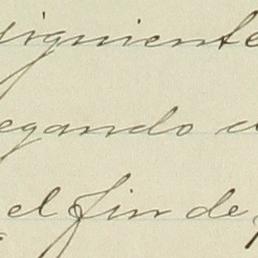 siguiente
egando
el fin de